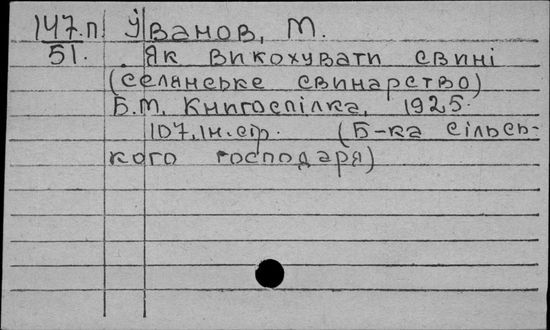 147.п. Іванов, М.
51. Як викохувати свині
(селянське свинарство)
Б.М. Книгоспілка, 1925.
107, Ін. стр. (Б-ка сільсь-
кого господаря)